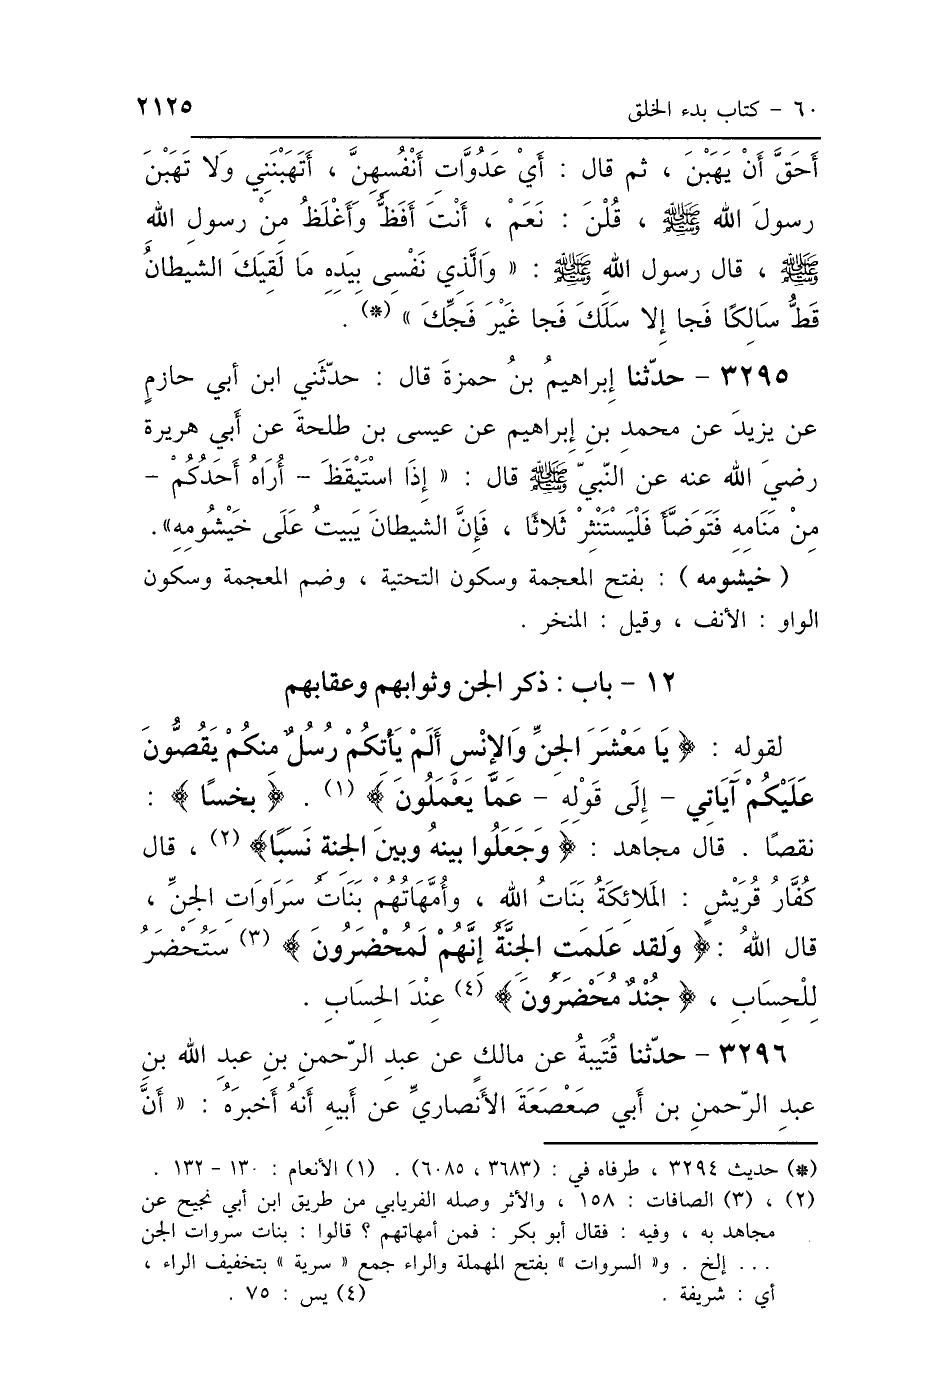 ٦٠ - كتاب بدء الخلق ٢١٢٥
أَحَقَّ أَنْ يَهَبْنَ ، ثم قال : أَيْ عَدُوَّاتِ أَنْفُسِهِنَّ ، أَتَهَبْنَنِي وَلَا تَهَبْنَ
رسولَ الله ﷺ ، قُلْنَ : نَعَمْ ، أَنْتَ أَفَظُّ وَأَغْلَظُ مِنْ رسولِ الله
ﷺ ، قال رسول الله ﷺ : « وَالَّذِي نَفْسِي بِيَدِهِ مَا لَقِيَكَ الشيطانُ
قَطُّ سَالِكًا فَجا إِلا سَلَكَ فَجا غَيْرَ فَجِّكَ » (*) .
٣٢٩٥ - حدّثنا إِبراهيمُ بنُ حمزةَ قال : حدّثَني ابن أبي حازمٍ
عن يزيدَ عن محمدِ بنِ إِبراهيم عن عيسى بن طلحةَ عن أَبي هريرة
رضيَ الله عنه عن النّبيّ ﷺ قال : « إِذَا اسْتَيْقَظَ - أُرَاهُ أَحَدُكُمْ -
مِنْ مَنَامِهِ فَتَوَضَّأَ فَلْيَسْتَنْثِرْ ثَلاثًا ، فَإِنَّ الشيطانَ يَبِيتُ عَلَى خَيْشُومِهِ» .
( خيشومه ) : بفتح المعجمة وسكون التحتية ، وضم المعجمة وسكون
الواو : الأنف ، وقيل : المنخر .
١٢ - باب : ذكر الجن وثوابهم وعقابهم
لقوله : ﴿ يَا مَعْشَرَ الجِنِّ وَالإِنْسِ أَلَمْ يَأْتِكُمْ رُسُلٌ مِنكُمْ يَقُصُّونَ
عَلَيْكُمْ آيَاتِي - إِلَى قَوْلِهِ - عَمَّا يَعْمَلُونَ ﴾ (١) . ﴿ بخسًا ﴾ :
نقصًا . قال مجاهد : ﴿ وَجَعَلُوا بينهُ وبينَ الجِنةِ نَسَبًا﴾ (٢) ، قال
كُفَّارُ قُرَيْشٍ : المَلائِكَةُ بَنَاتُ الله ، وأُمَّهَاتُهُمْ بَنَاتُ سَرَاوَاتِ الجِنِّ ،
قال اللهُ : ﴿ وَلَقد عَلِمَتِ الجِنَّةُ إِنَّهُمْ لَمُحْضَرُونَ ﴾ (٣) سَتُحْضَرُ
لِلْحِسَابِ ، ﴿ جُنْدٌ مُحْضَرُونَ ﴾ (٤) عِنْدَ الحِسَابِ .
٣٢٩٦ - حدّثنا قُتَيبةُ عن مالكٍ عن عبد الرّحمنِ بنِ عبدِ الله بنِ
عبدِ الرّحمنِ بن أَبي صَعْصَعَةَ الأَنصاريِّ عن أَبيهِ أَنهُ أَخبرَهُ : « أَنَّ
(*) حديث ٣٢٩٤ ، طرفاه في : (٣٦٨٣ ، ٦٠٨٥) . (١) الأنعام : ١٣٠ - ١٣٢ .
(٢) ، (٣) الصافات : ١٥٨ ، والأثر وصله الفريابي من طريق ابن أبي نجيح عن
مجاهد به ، وفيه : فقال أبو بكر : فمن أمهاتهم ؟ قالوا : بنات سروات الجن
... إلخ . و« السروات » بفتح المهملة والراء جمع « سرية » بتخفيف الراء ،
أي : شريفة . (٤) يس : ٧٥ .